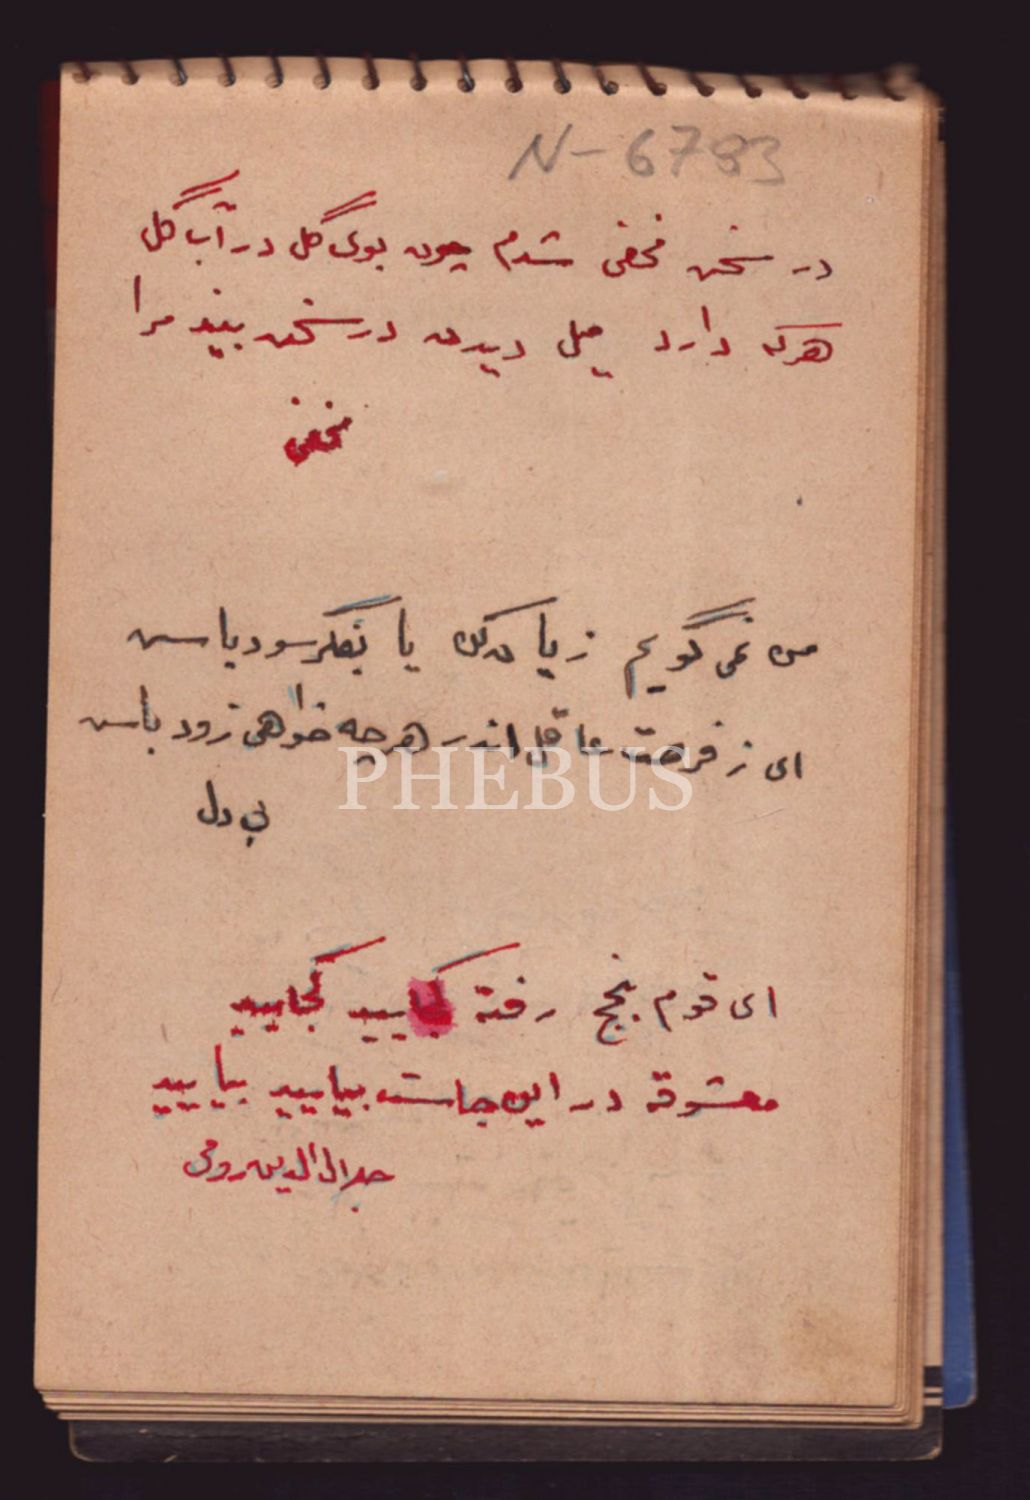 N-6783
در سخن مخفی شدم چون بوی گل در آب گل
هرکه دارد میل دیدن در سخن بیند مرا
مخفی
من نمی گویم زیان کن یا بفکر سود باش
ای ز فرصت غافل اندر هرچه خواهی زود باش
بی دل
PHEBUS
ای قوم بحج رفته کجایید کجایید
معشوقه در این جاست بیایید بیایید
جلال الدین رومی